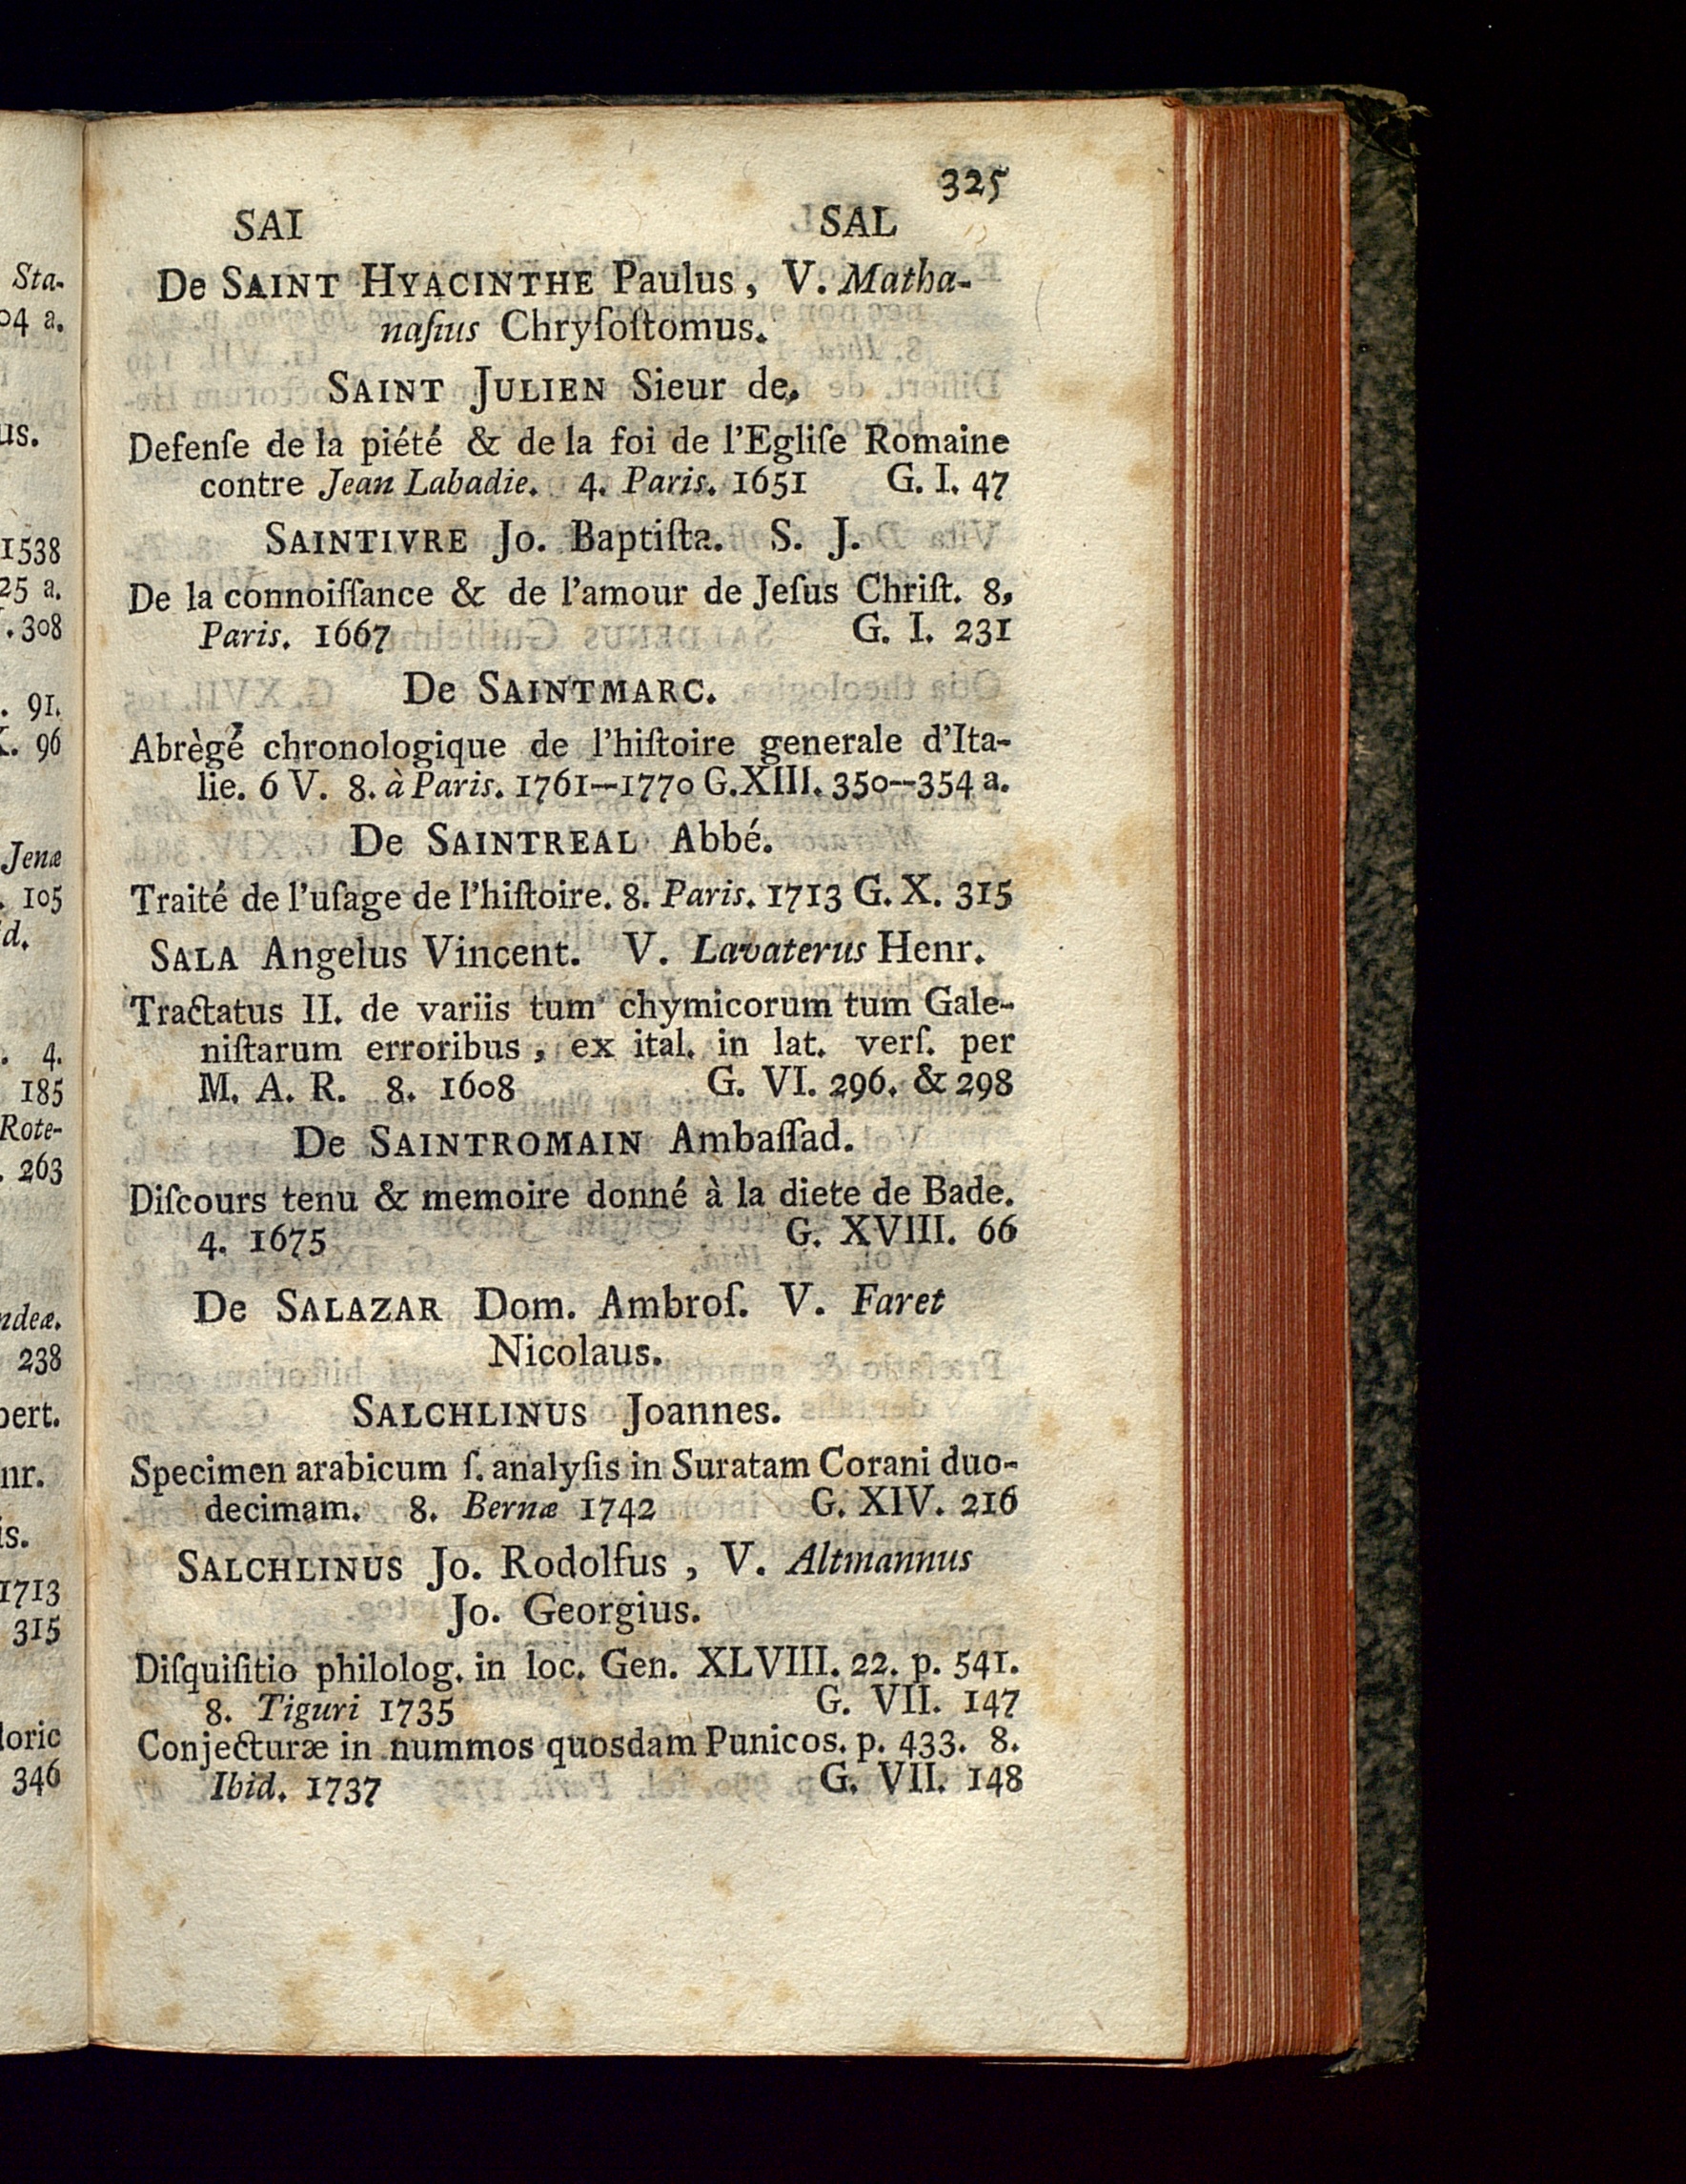 Sta-
04 a.
us.
1538
25 a.
. 308
. 91.
. 96
Jenæ
. 105
d.
. 4.
185
Rote-
. 263
ndeæ.
238
bert.
nr.
is.
1713
315
loric
346
325
SAI SAL
De SAINT HYACINTHE Paulus, V. Matha-
naſius Chryſoſtomus.
SAINT JULIEN Sieur de.
Defenſe de la piété & de la foi de l'Egliſe Romaine
contre Jean Labadie. 4. Paris. 1651 G. I. 47
SAINTIVRE Jo. Baptiſta. S. J.
De la connoiſſance & de l'amour de Jeſus Chriſt. 8,
Paris. 1667 G. I. 231
De SAINTMARC.
Abrègé chronologique de l'hiſtoire generale d'Ita-
lie. 6 V. 8. à Paris. 1761—1770 G. XIII. 350—354 a.
De SAINTREAL Abbé.
Traité de l'uſage de l'hiſtoire. 8. Paris. 1713 G. X. 315
SALA Angelus Vincent. V. Lavaterus Henr.
Tractatus II. de variis tum chymicorum tum Gale-
niſtarum erroribus, ex ital. in lat. verſ. per
M. A. R. 8. 1608 G. VI. 296. & 298
De SAINTROMAIN Ambaſſad.
Diſcours tenu & memoire donné à la diete de Bade.
4. 1675 G. XVIII. 66
De SALAZAR Dom. Ambroſ. V. Faret
Nicolaus.
SALCHLINUS Joannes.
Specimen arabicum ſ. analyſis in Suratam Corani duo-
decimam. 8. Bernæ 1742 G. XIV. 216
SALCHLINUS Jo. Rodolfus, V. Altmannus
Jo. Georgius.
Diſquiſitio philolog. in loc. Gen. XLVIII. 22. p. 541.
8. Tiguri 1735 G. VII. 147
Conjecturæ in nummos quosdam Punicos. p. 433. 8.
Ibid. 1737 G. VII. 148